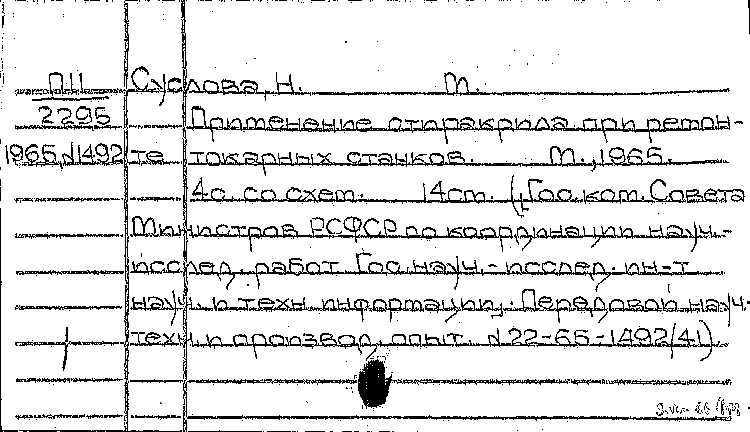 ПII Суслова, Н. М.
2295 Применение стиракрила при ремон-
1965,N1492 те токарных станков. М.,1965.
4с. со схем. 14см. (Гос. ком. Совета
Министров РСФСР по координации науч.-
исслед. работ Гос. науч.-исслед. ин-т
науч. и техн. информации. Передовой науч.-
техн. и производ. опыт. N22-65-1492/41).